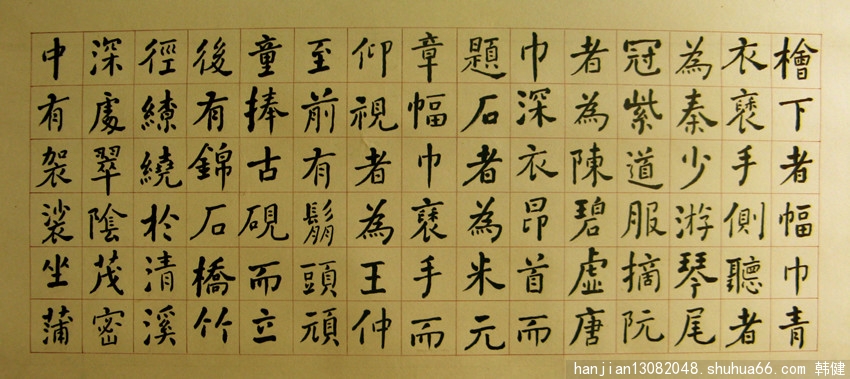 檜下者幅巾青
衣褒手側聽者
為秦少游琴尾
冠紫道服摘阮
者為陳碧虛唐
巾深衣昂首而
題石者為米元
章幅巾褒手而
仰視者為王仲
至前有鬅頭頑
童捧古硯而立
後有錦石橋竹
徑繚繞於清溪
深處翠陰茂密
中有袈裟坐蒲
hanjian13082048.shuhua66.com 韩健